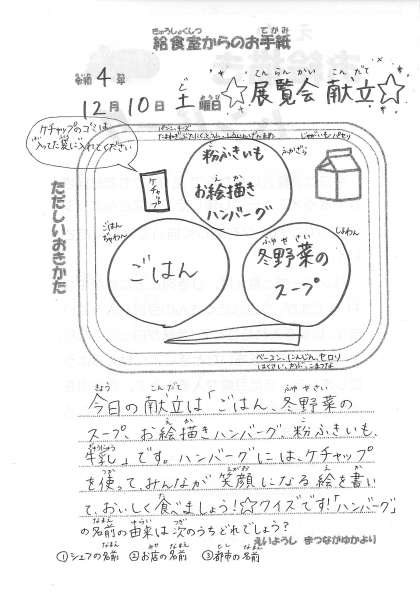 給食室からのお手紙
令和4年
12月10日土曜日 ☆展覧会献立☆
ケチャップのゴミは
入ってた袋に入れてください
ただしいおきかた
ケチャップ
粉ふきいも
お絵描き
ハンバーグ
えがざら
じゃがいもパセリ
ごはん
ぢゃわん
ごはん
しるわん
冬野菜の
スープ
ベーコン、にんじん、セロリ
はくさい、かぶ、こまつな
今日の献立は「ごはん、冬野菜の
スープ、お絵描きハンバーグ、粉ふきいも、
牛乳」です。ハンバーグには、ケチャップ
を使って、みんなが笑顔になる絵を書い
て、おいしく食べましょう!☆クイズです!「ハンバーグ」
の名前の由来は次のうちどれでしょう?
えいようし まつながゆかより
①シェフの名前 ②お店の名前 ③都市の名前